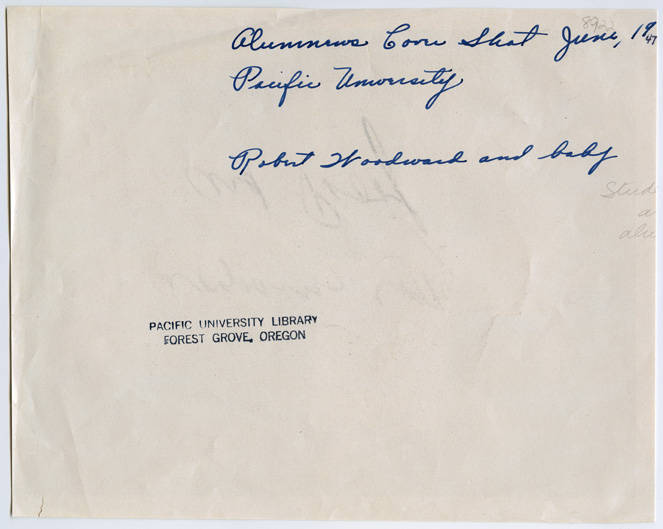 892
Alumnews Cover Shot June, 1947
Pacific University
Robert Woodward and baby
Stud
a
alu
PACIFIC UNIVERSITY LIBRARY
FOREST GROVE, OREGON